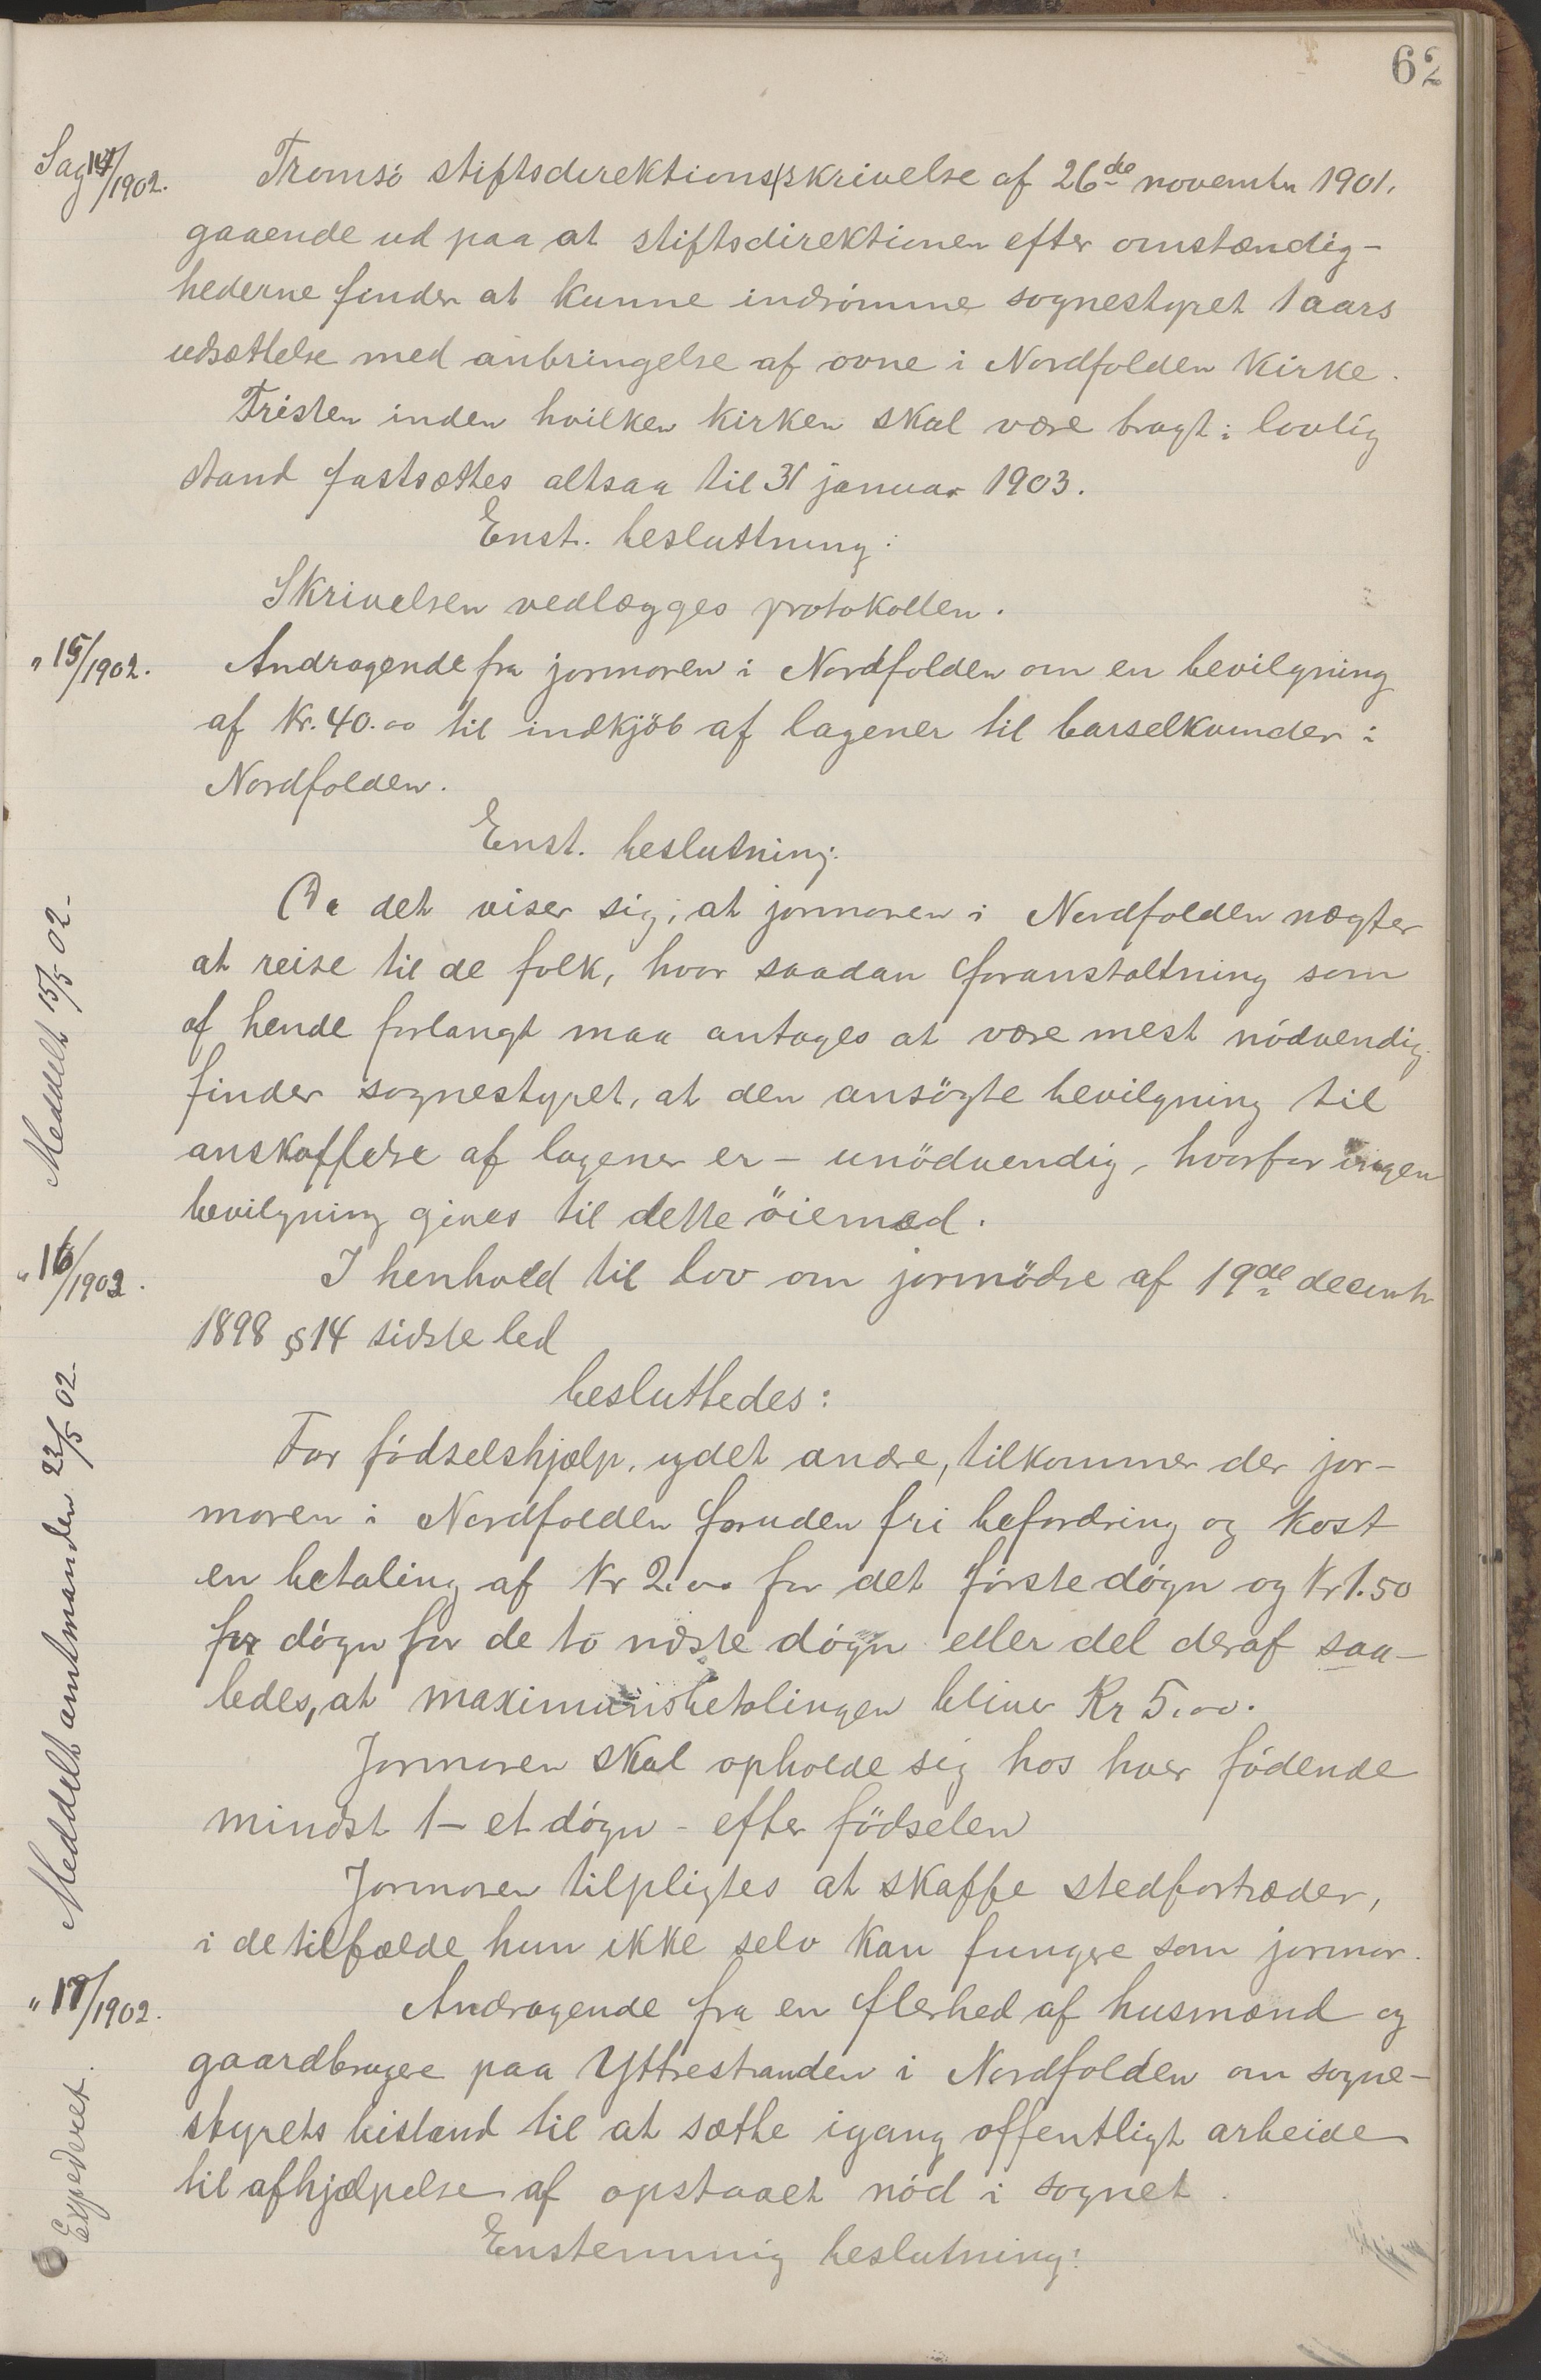 62
Sag 14/1902.
Tromsö stiftsdirektions skrivelse af 26de november 1901,
gaaende ud paa at stiftsdirektionen efter omstændig-
hederne finder at kunne indrömme sognestyret 1 aars
udsættelse med anbringelse af ovne i Nordfolden Kirke.
Fristen inden hvilken Kirken skal være bragt i lovlig
stand fastsættes altsaa til 31 januar 1903.
Enst. besluttning:
Skrivelsen vedlægges protokollen.
" 15/1902.
Andragende fra jormoren i Nordfolden om en bevilgning
af Kr. 40.00 til indkjöb af lagener til barselkvinder i
Nordfolden.
Enst. beslutning.
Da det viser sig, at jormoren i Nordfolden nægter
at reise til de folk, hvor saadan foranstaltning som
af hende forlangt maa antages at være mest nödvendig,
finder sognestyret, at den ansögte bevilgning til
anskaffelse af lagener er - unödvendig, hvorfor ingen
bevilgning gives til dette öiemed.
Meddelt 15/5 02-
" 16/1902.
I henhold til lov om jormödre af 19de decembr
1898 § 14 sidste led
besluttedes:
For födselshjælp, ydet andre, tilkommer der jor-
moren i Nordfolden foruden fri befordring og kost
en betaling af Kr 2.00 for det förste dögn og Kr 1.50
for dögn for de to næste dögn eller del deraf saa-
ledes, at maximumsbetalingen bliver Kr 5.00.
Jormoren skal opholde sig hos hver födende
mindst 1 - et dögn - efter födselen
Jormoren tilpligtes at skaffe stedfortræder,
i de tilfælde hun ikke selv kan fungere som jormor.
Meddelt amtmanden 22/5 02-
" 17/1902.
Andragende fra en flerhed af husmænd og
gaardbrugere paa Yttrestranden i Nordfolden om sogne-
styrets bistand til at sætte igang offentligt arbeide
til afhjælpelse af opstaaet nöd i sognet.
Enstemmig beslutning:
Expederet.